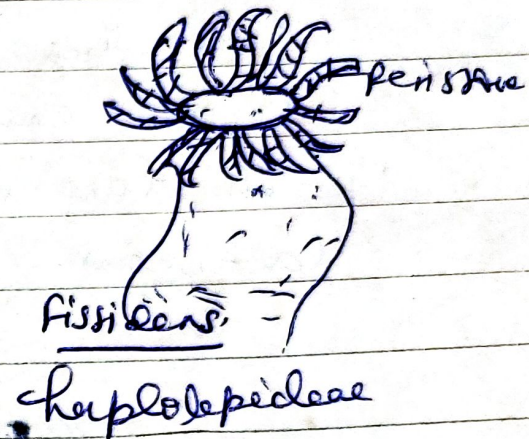 Peristome
Fissidens
haplolepideae